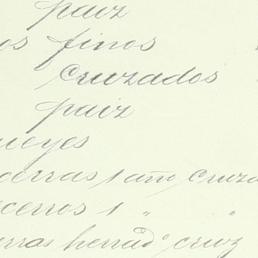 paiz
os finos
cruzados
paiz
ueyes
cerras 1 año cruza
ecerros 1 " "
rras herrad° cruz